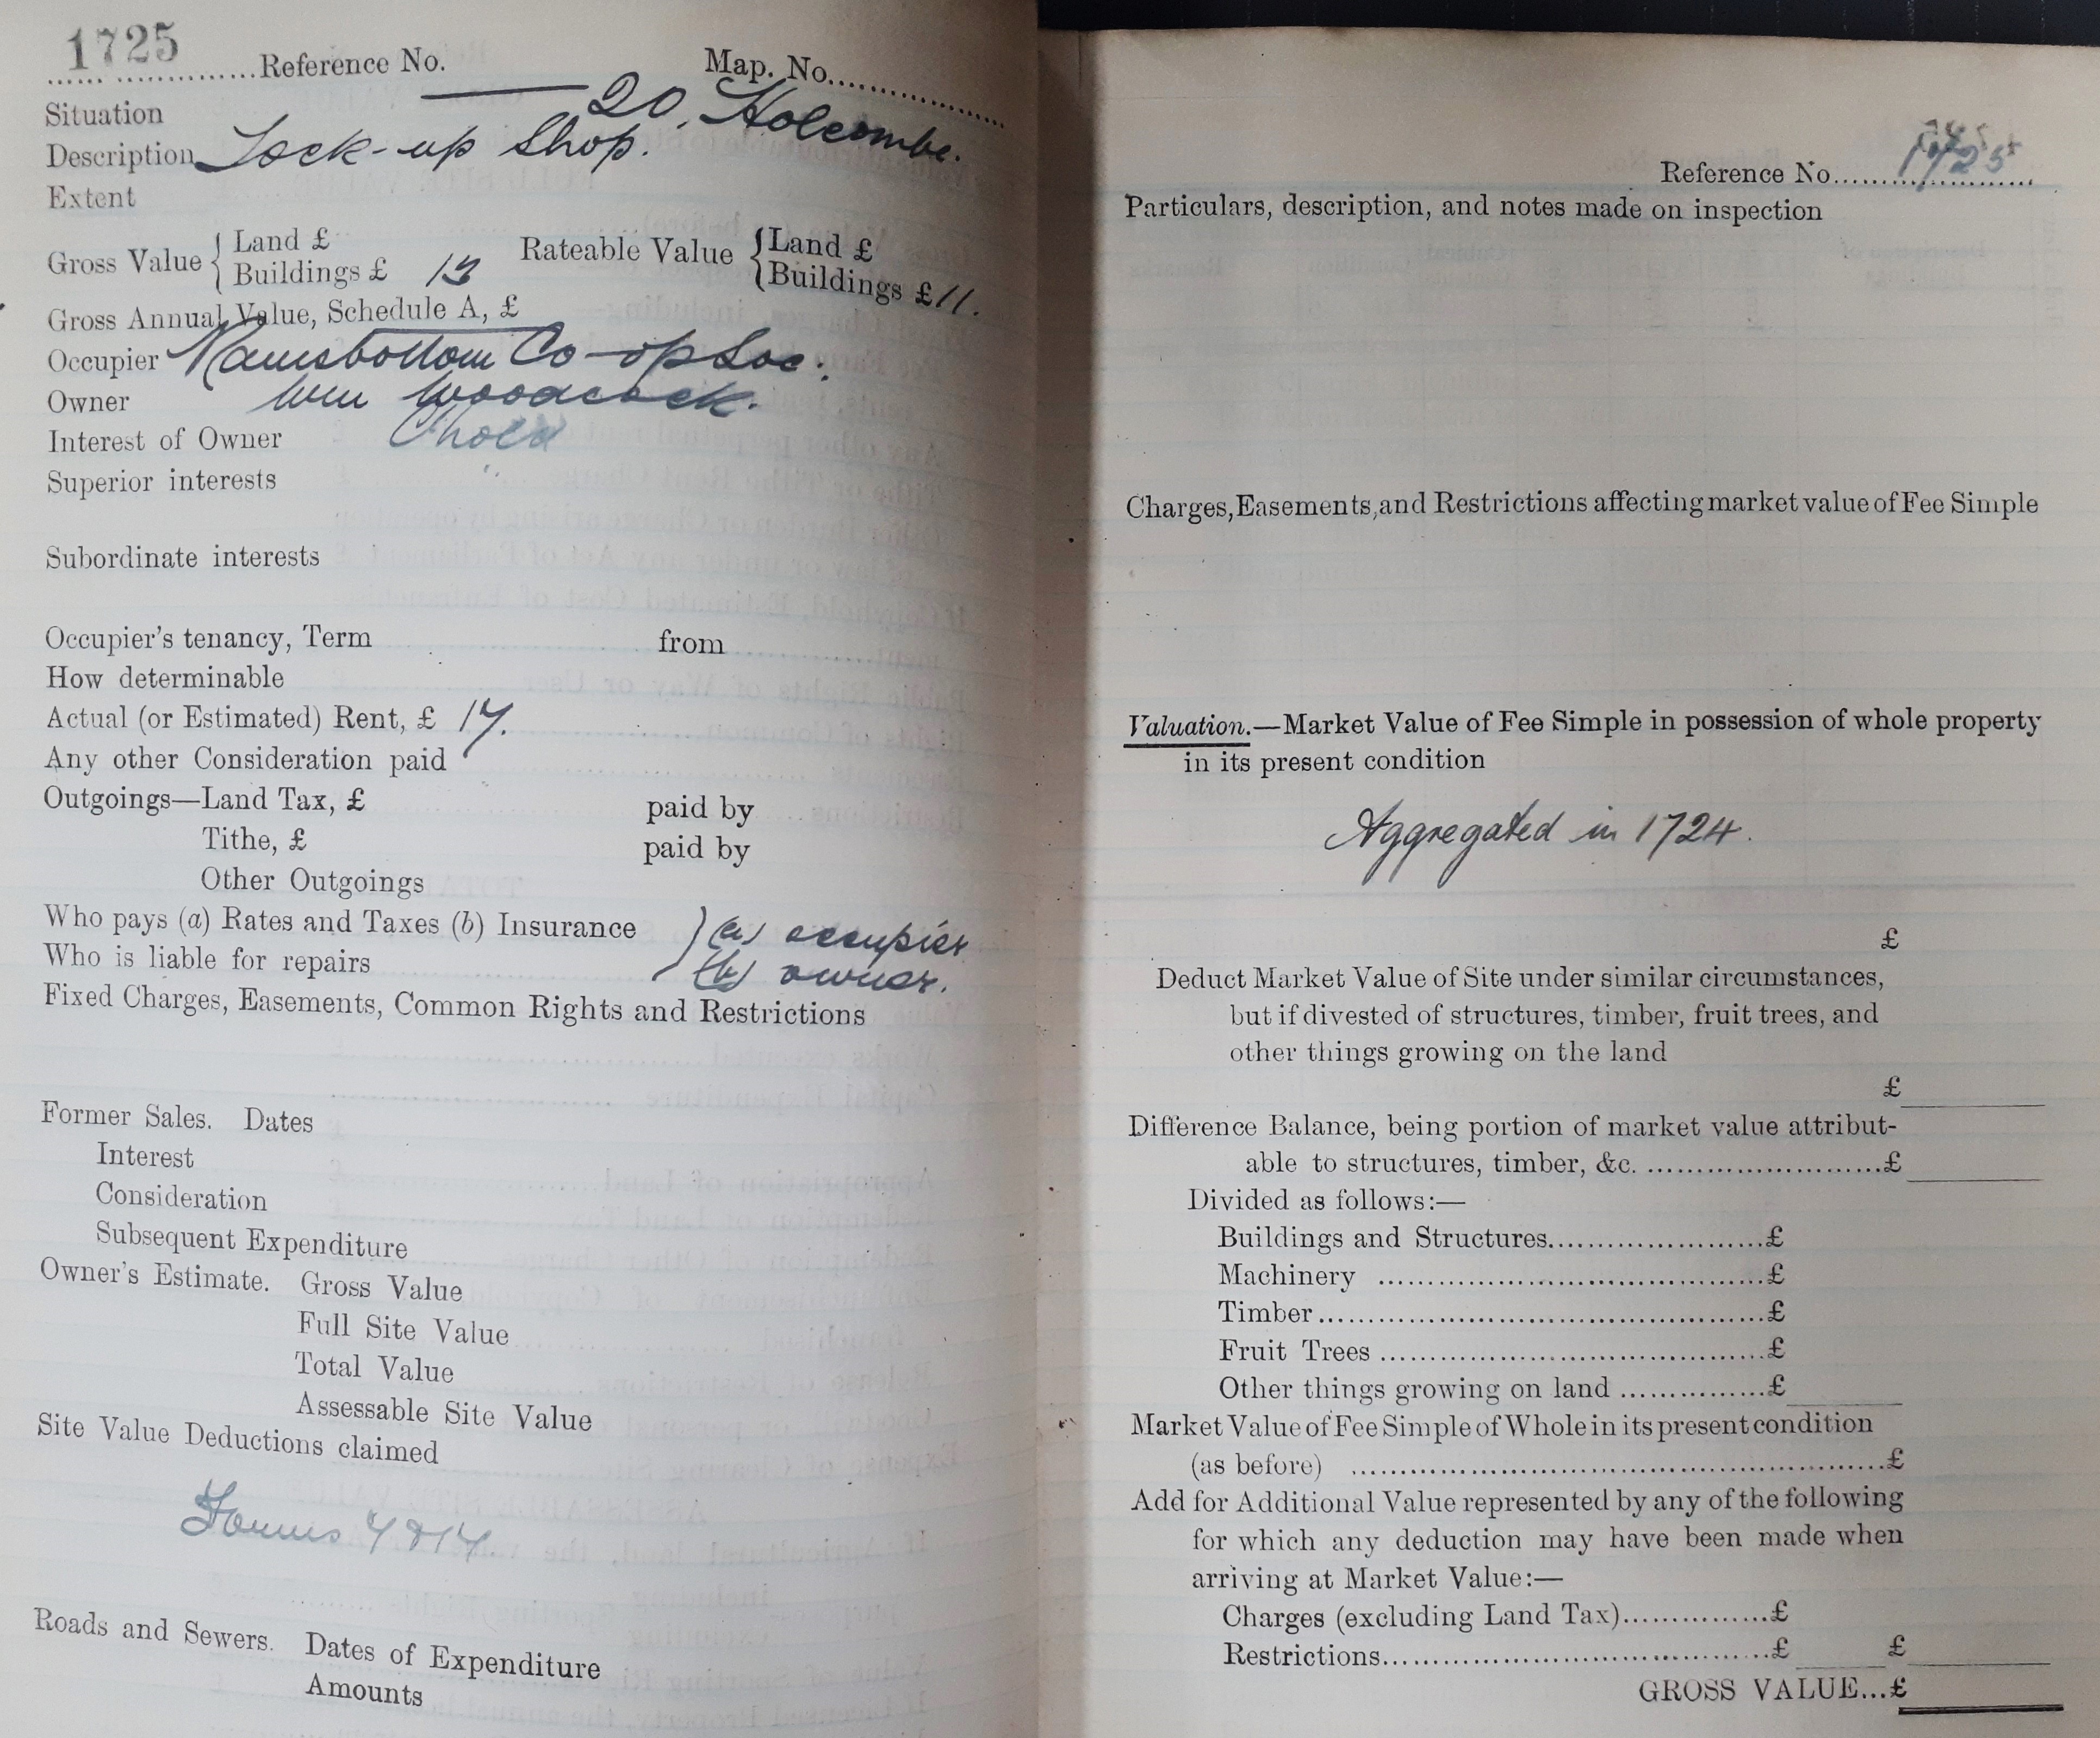 1725 Reference No. Map. No.
Situation — 20, Holcombe.
Description Lock-up Shop.
Extent
Gross Value { Land £
Buildings £ 13
Rateable Value { Land £
Buildings £ 11.
Gross Annual Value, Schedule A, £
Occupier Ramsbottom Co-op Soc:
Owner Wm Woodcock.
Interest of Owner Chold
Superior interests
Subordinate interests
Occupier's tenancy, Term from
How determinable
Actual (or Estimated) Rent, £ 17.
Any other Consideration paid
Outgoings—Land Tax, £ paid by
Tithe, £ paid by
Other Outgoings
Who pays (a) Rates and Taxes (b) Insurance } (a) occupier
Who is liable for repairs (b) owner.
Fixed Charges, Easements, Common Rights and Restrictions
Former Sales. Dates
Interest
Consideration
Subsequent Expenditure
Owner's Estimate. Gross Value
Full Site Value
Total Value
Assessable Site Value
Site Value Deductions claimed
Roads and Sewers. Dates of Expenditure
Amounts
Reference No. 1725
Particulars, description, and notes made on inspection
Charges, Easements, and Restrictions affecting market value of Fee Simple
Valuation.—Market Value of Fee Simple in possession of whole property
in its present condition
Aggregated in 1724.
£
Deduct Market Value of Site under similar circumstances,
but if divested of structures, timber, fruit trees, and
other things growing on the land
£
Difference Balance, being portion of market value attribut-
able to structures, timber, &c. £
Divided as follows:—
Buildings and Structures £
Machinery £
Timber £
Fruit Trees £
Other things growing on land £
Market Value of Fee Simple of Whole in its present condition
(as before) £
Add for Additional Value represented by any of the following
for which any deduction may have been made when
arriving at Market Value:—
Charges (excluding Land Tax) £
Restrictions £ £
GROSS VALUE...£